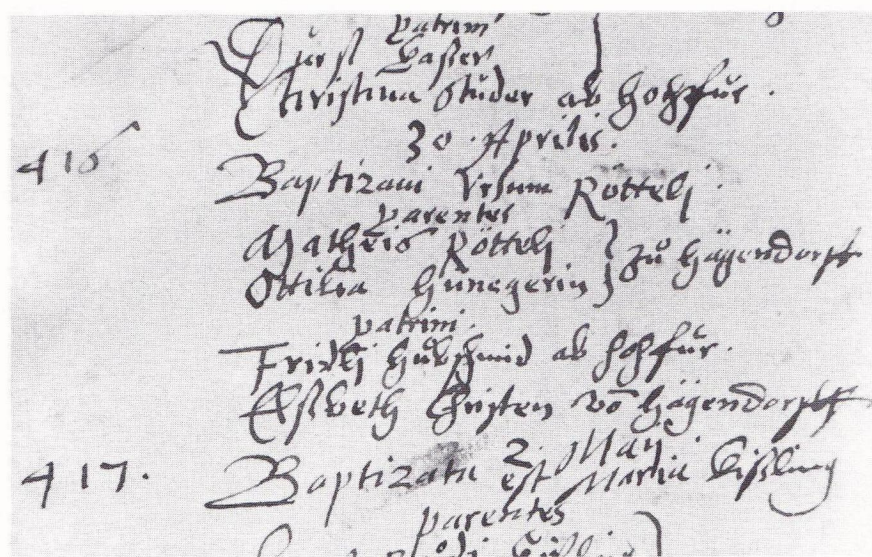 patrini
Durst Vasser
Christina Studer ab Hohfür.
30. Aprilis.
416 Baptizavi Ursum Röttelj.
parentes
Matheis Röttelj } zů Hägendorff
Ottilia Hunegerin
patrini.
Fridli Hůbschmid ab Hohfur.
Elsbeth Christen vō Hägendorff
2. Maij.
417. Baptizata est Maria Kissling
parentes